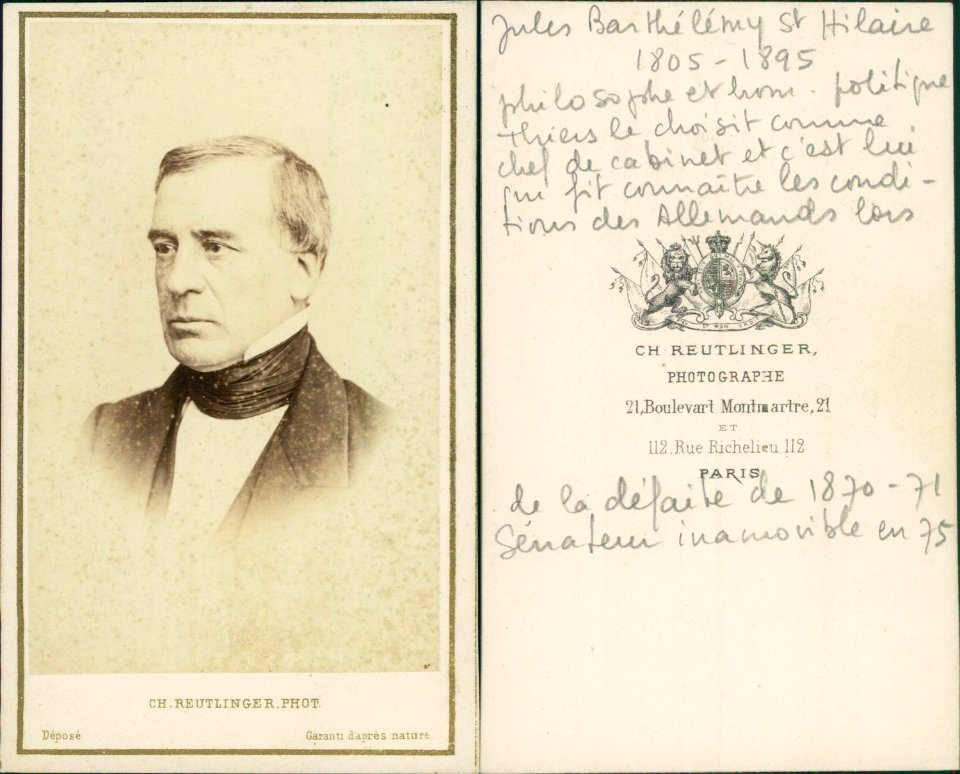 CH. REUTLINGER, PHOT.
Déposé
Garanti d'après nature.
Jules Barthélémy St Hilaire
1805 - 1895
philosophe et hom. politique
Thiers le choisit comme
chef de cabinet et c'est lui
qui fit connaître les condi-
tions des Allemands lors
ET MON DROIT
CH REUTLINGER,
PHOTOGRAPHE
21, Boulevart Montmartre, 21
ET
112, Rue Richelieu, 112
PARIS
de la défaite de 1870 - 71
Sénateur inamovible en 75